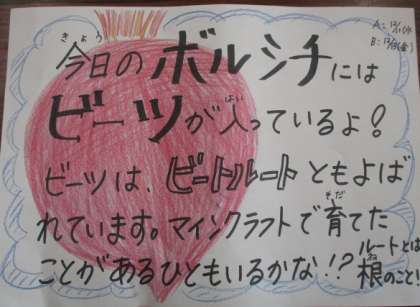 A：12/11(水)
B：12/13(金)
きょう
今日のボルシチには
はい
ビーツが入っているよ！
ビーツは、ビートルートともよば
そだ
れています。マインクラフトで育てた
ルートとは
ことがあるひともいるかな!?
ね
根のこと